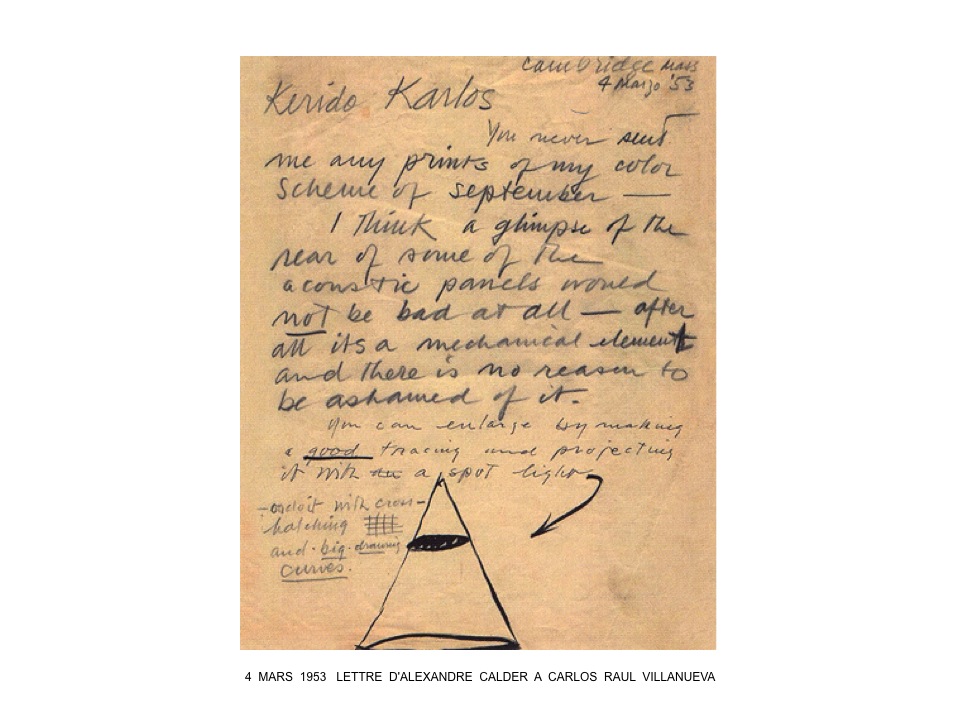 Cambridge Mass
4 Marzo '53
Kerido Karlos
You never sent
me any prints of my color
scheme of september —
I think a glimpse of the
rear of some of the
acoustic panels would
not be bad at all — after
all its a mechanical element
and there is no reason to
be ashamed of it.
You can enlarge by making
a good tracing and projecting
it with a spot light
- or do it with cross-
hatching
and big drawing
curves.
4 MARS 1953 LETTRE D'ALEXANDRE CALDER A CARLOS RAUL VILLANUEVA